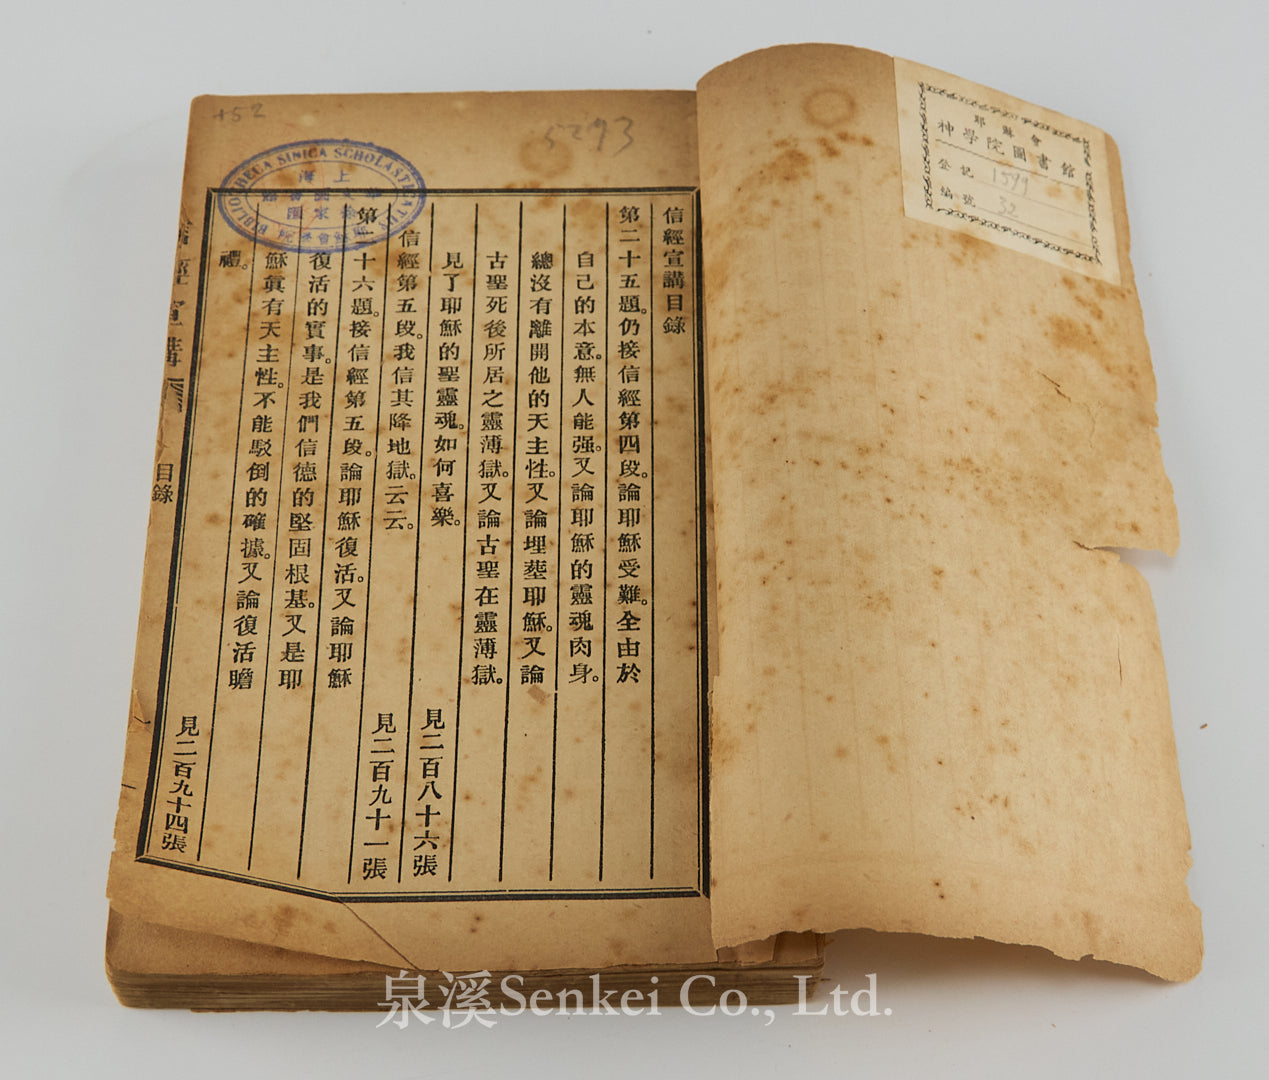 信經宣講目錄
第二十五題。仍接信經第四段。論耶穌受難。全由於
自己的本意。無人能强。又論耶穌的靈魂肉身。
總沒有離開他的天主性。又論埋塟耶穌。又論
古聖死後所居之靈薄獄。又論古聖在靈薄獄。
見了耶穌的聖靈魂。如何喜樂。
見二百八十六張
信經第五段。我信其降地獄。云云。
第二十六題。接信經第五段。論耶穌復活。又論耶穌
見二百九十一張
復活的實事。是我們信德的堅固根基。又是耶
穌眞有天主性。不能駁倒的確據。又論復活瞻
禮。
見二百九十四張
信經宣講
目錄
452
5293
BIBLIOTHECA SINICA SCHOLASTICATUS
上海
耶穌會
神學院圖書館
登記 1599
編號 32
泉溪Senkei Co., Ltd.